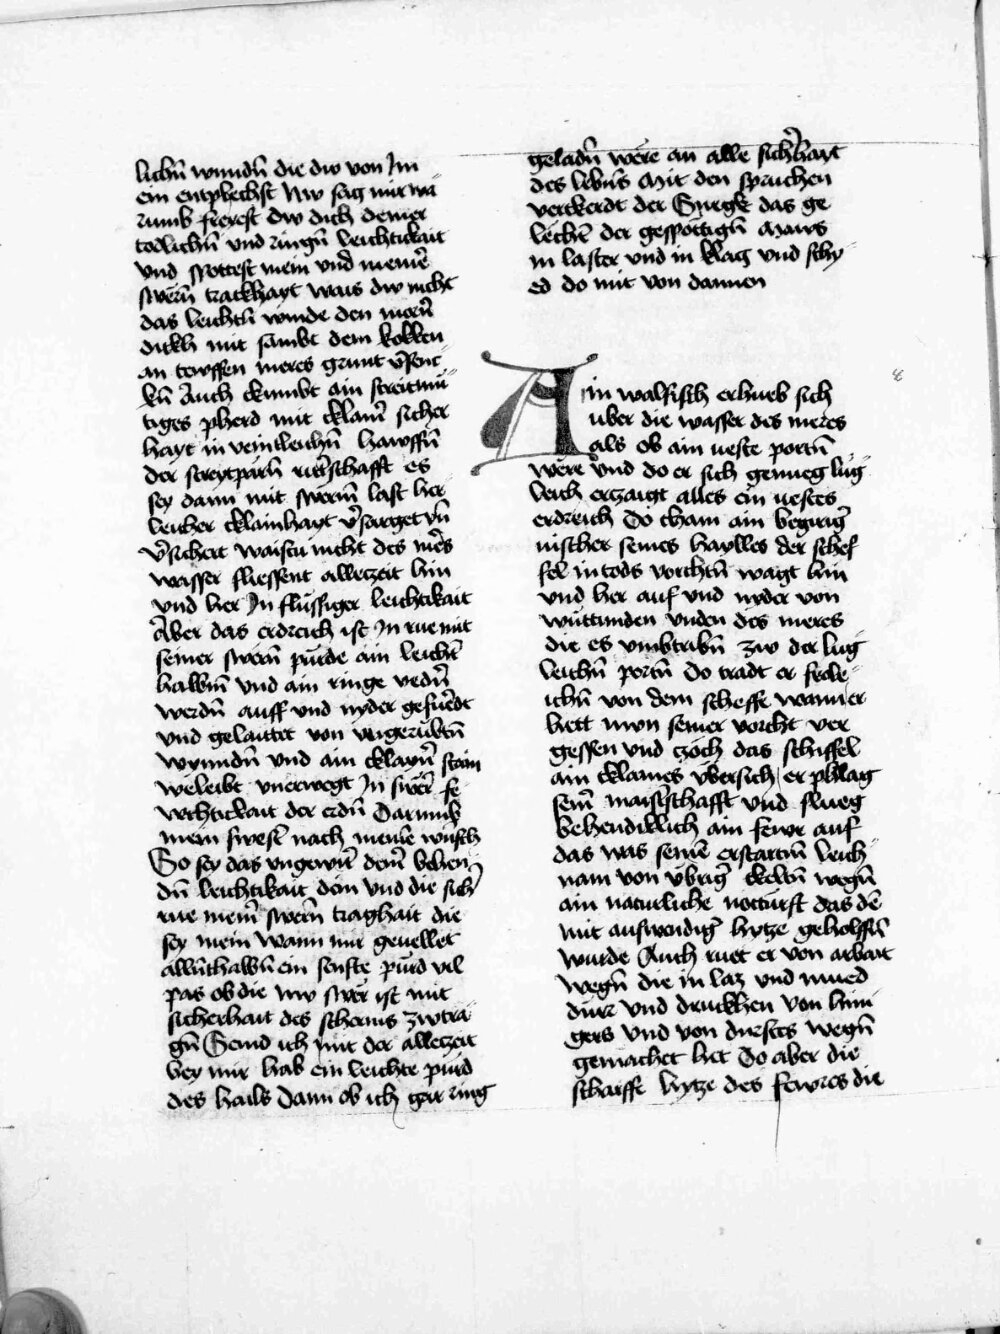 lichn̄ wundn̄ die dw von Im
ein entphechst Nw sag mir wa
rumb frewest dw dich deiner
todlichn̄ vnd ringn̄ leichtickait
vnd spottest mein vnd meiner̄
swern̄ trackhayt wais dw nicht
das leichtn̄ winde den merr̄
dickh mit sambt dem kokken
an tewffen meres grunt v̄senc
kn̄ Auch ckumbt ain streitmu
tiges pherd mit cklainr̄ sicher
hayt in veintleichn̄ hawffn̄
der streytparn̄ ritt̄schafft es
sey dann mit swerm̄ last her
leicher cklainhayt v̄sarget vn̄
v̄sichert waistu nicht des mer̄s
wasser fliessent alletzeit hin
vnd her In flussiger leichtikait
Aber das erdreich ist In rue mit
seiner swern̄ purde ain leichte
halbm̄ vnd ain ringe vedn̄
werdn̄ auff vnd nyder gefuerdt
vnd gelaittet von vngerubtn̄
wynndn̄ vnd ain cklayn̄ stain
weleibt vnerwegt In swer̄ se
wchtickait der erdn̄ Darumb
mein swest̄ nach meinē wunsch
So sey das vngewis̄ deinr̄ behen
dn̄ leichtikait dein vnd die sich̄
rue meinr̄ swern̄ traghait die
sey mein Wann mir geuellet
allnthalbn̄ ein senfte purd vil
pas ob die nw swer ist mit
sicherhait des scherms zwtra
gn̄ Seind ich mit der alletzeit
bey mir hab ein leichte purd
des hails Dann ob ich gar ring
geladn̄ were an alle sich̄hayt
des lebns Mit den spruchen
verckerdt der Snegk das ge
lechter der gespöttign̄ Maws
in laster vnd in klag vnd schy
ed do mit von dannen
8
Ain walfisch erhueb sich
uber die wasser des meres
als ob ain veste portn̄
were vnd do er sich genueg lug
leich ertzaigt alles ein vestes
erdreich Do cham ain begiriḡ
vischer seines haylles der schef
fel in tods vorchtn̄ wagt hin
vnd her auf vnd nyder von
wuttunden vnden des meres
die es vmbtribn̄ zw der lug
leichn̄ portn̄ Do tradt er frole
ichn̄ von dem scheffe wann er
hett nwn seiner vorcht ver
gessen vnd zoch das schiffel
ain cklaines vbersich er phlag
seinr̄ maist̄schafft vnd slueg
behendiklich ain fewr auf
das was seinē erstartm̄ leich
nam von vbriḡ ckeltn̄ wegn̄
ain naturliche notturft das dē
mit auswendiḡ hytze geholffn̄
wurde Auch ruet er von arbait
wegn̄ die in laz vnd mued
dürr vnd druckhen von hun
gers vnd von durstes wegn̄
gemachet het Do aber die
scharffe hytze des fewres die